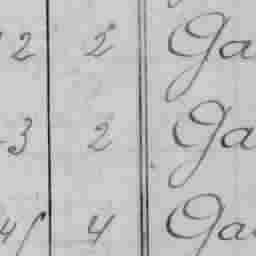 2 2 Ga
3 2 Ga
4 4 Ga